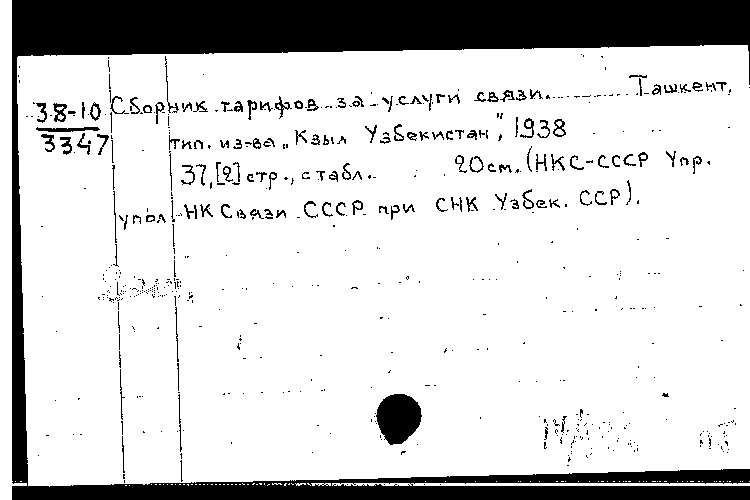 38-10 Сборник тарифов за услуги связи. Ташкент,
3347 тип. из-ва „Кзыл Узбекистан", 1938
37,[2] стр., с табл. 20см. (НКС-СССР Упр.
упол. НК Связи СССР при СНК Узбек. ССР).